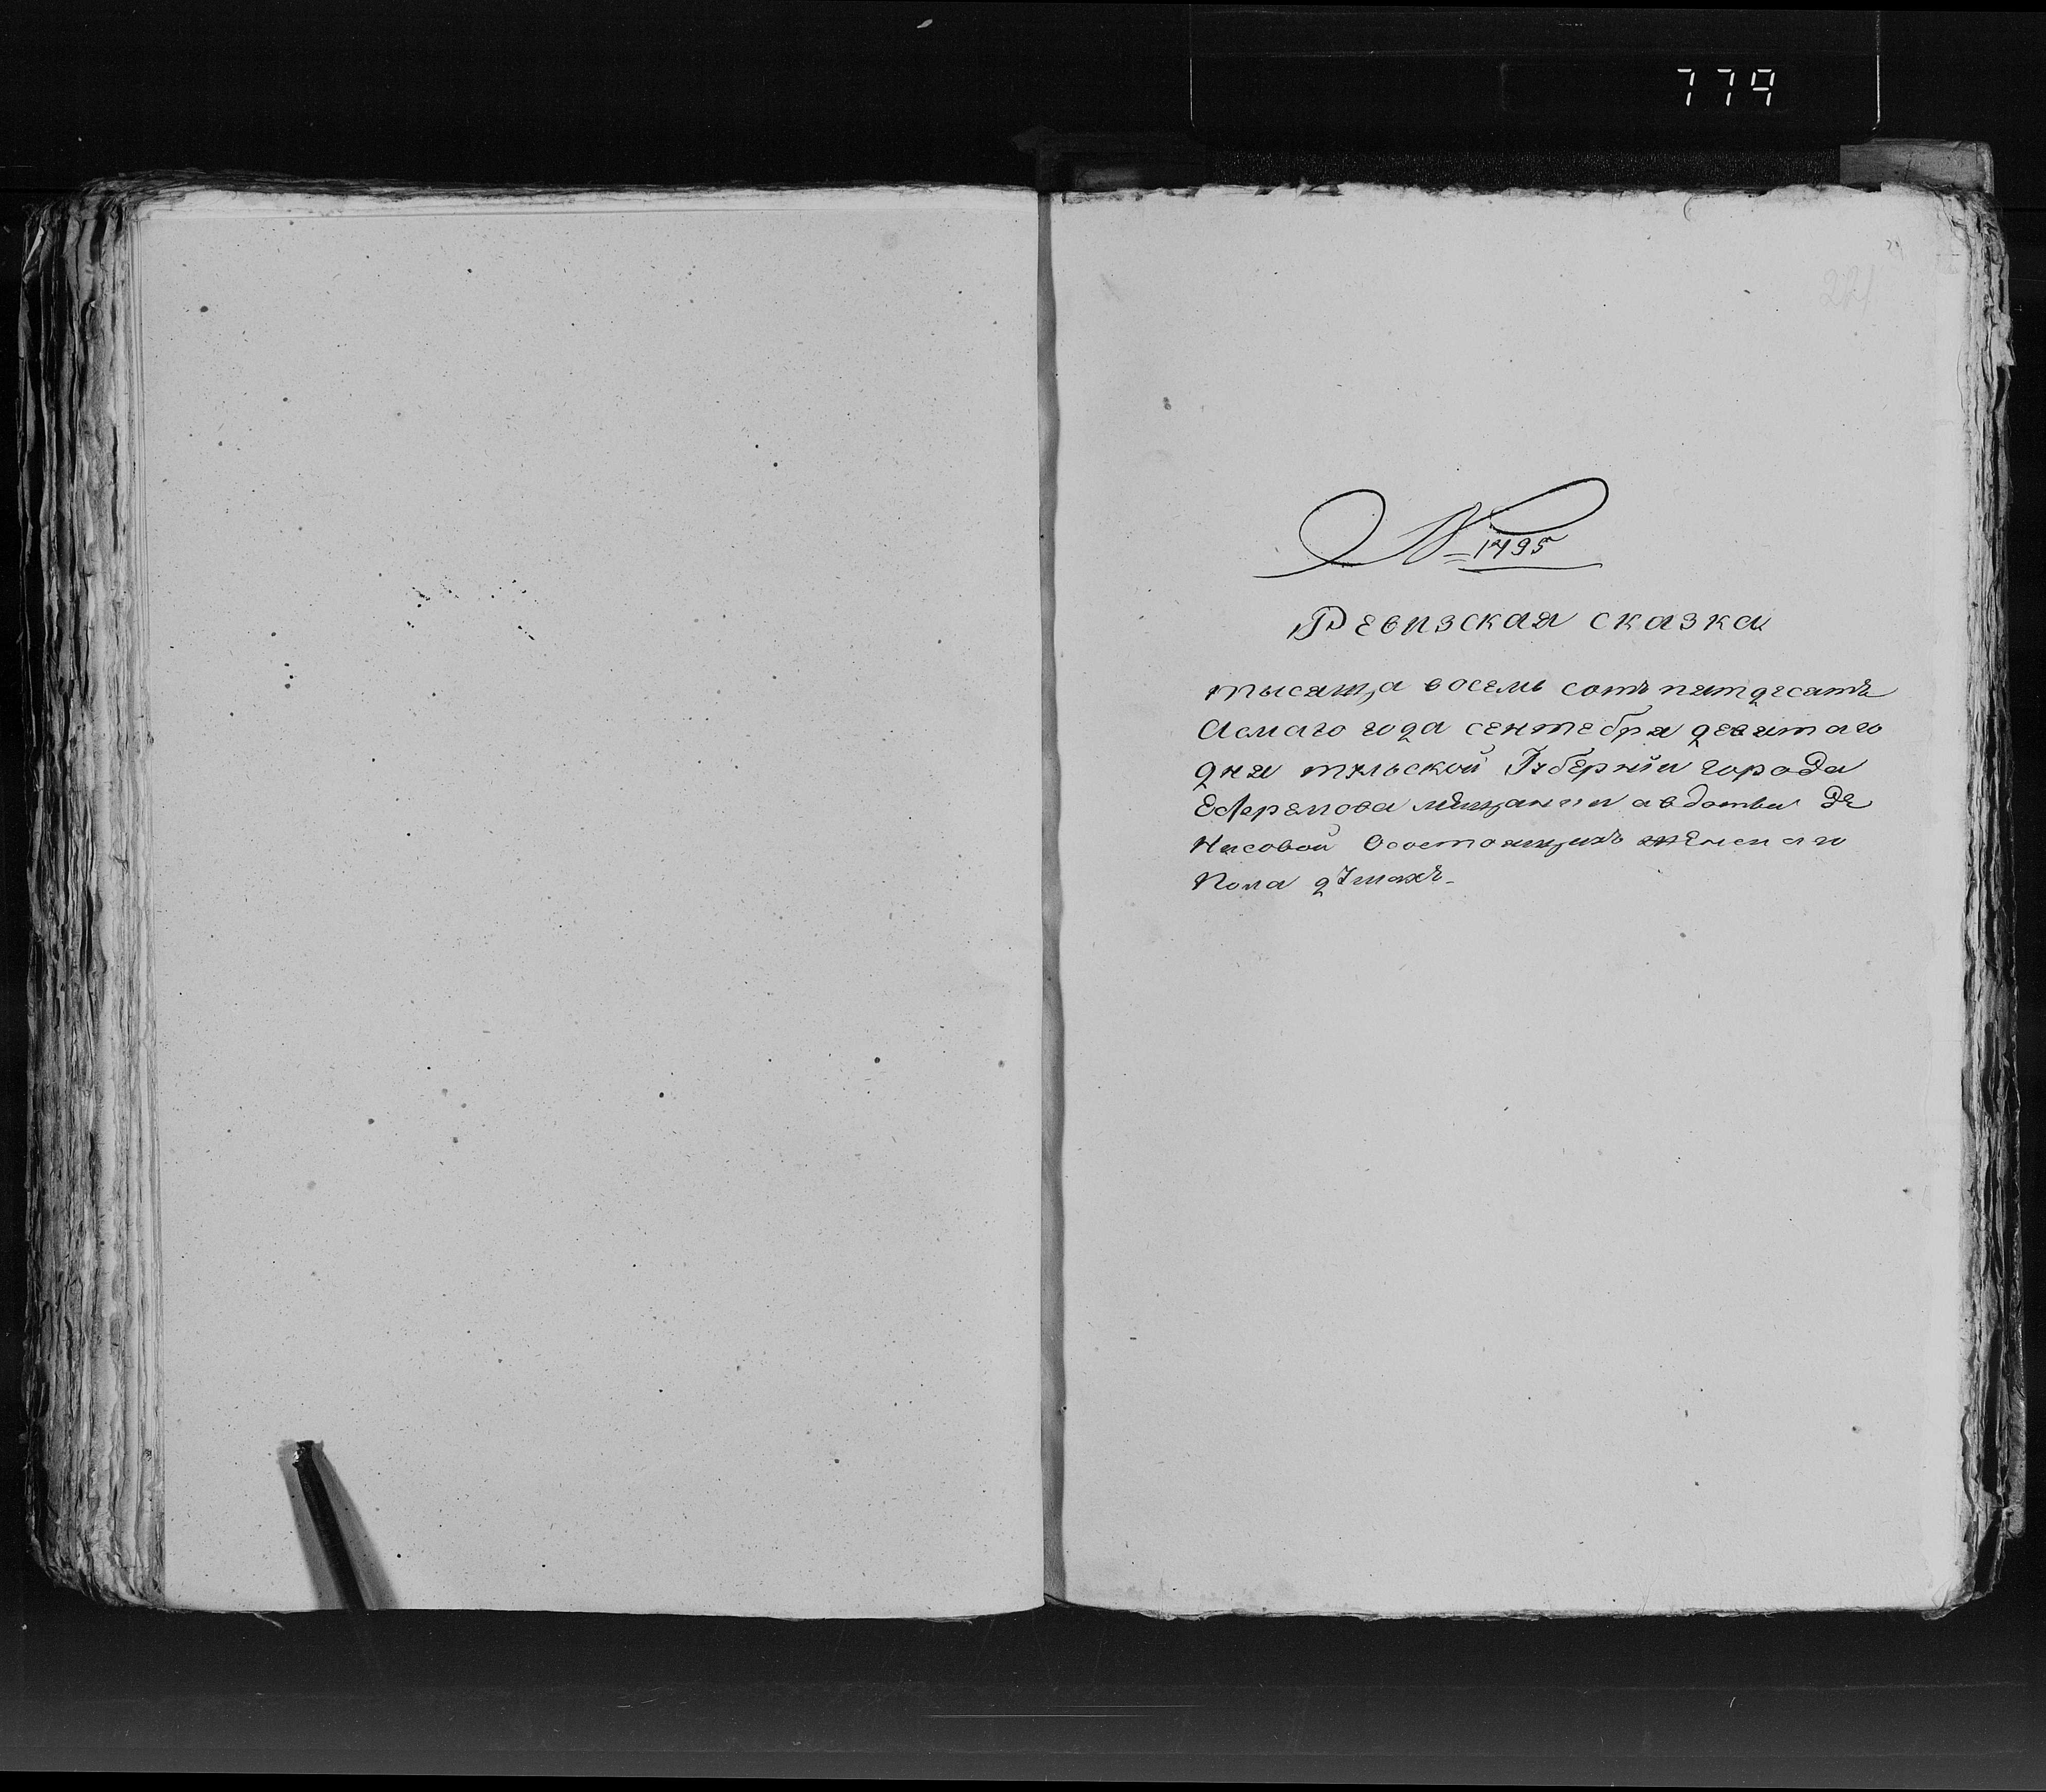 779
№ 1495
Ревизская сказка
тысяща восемь сотъ пятдесятъ
асмаго года сентебря девятаго
дня тульской Губерніи города
Ефремова мищанки авдотьи Де
нисовой осостоящихъ женскаго
пола душахъ